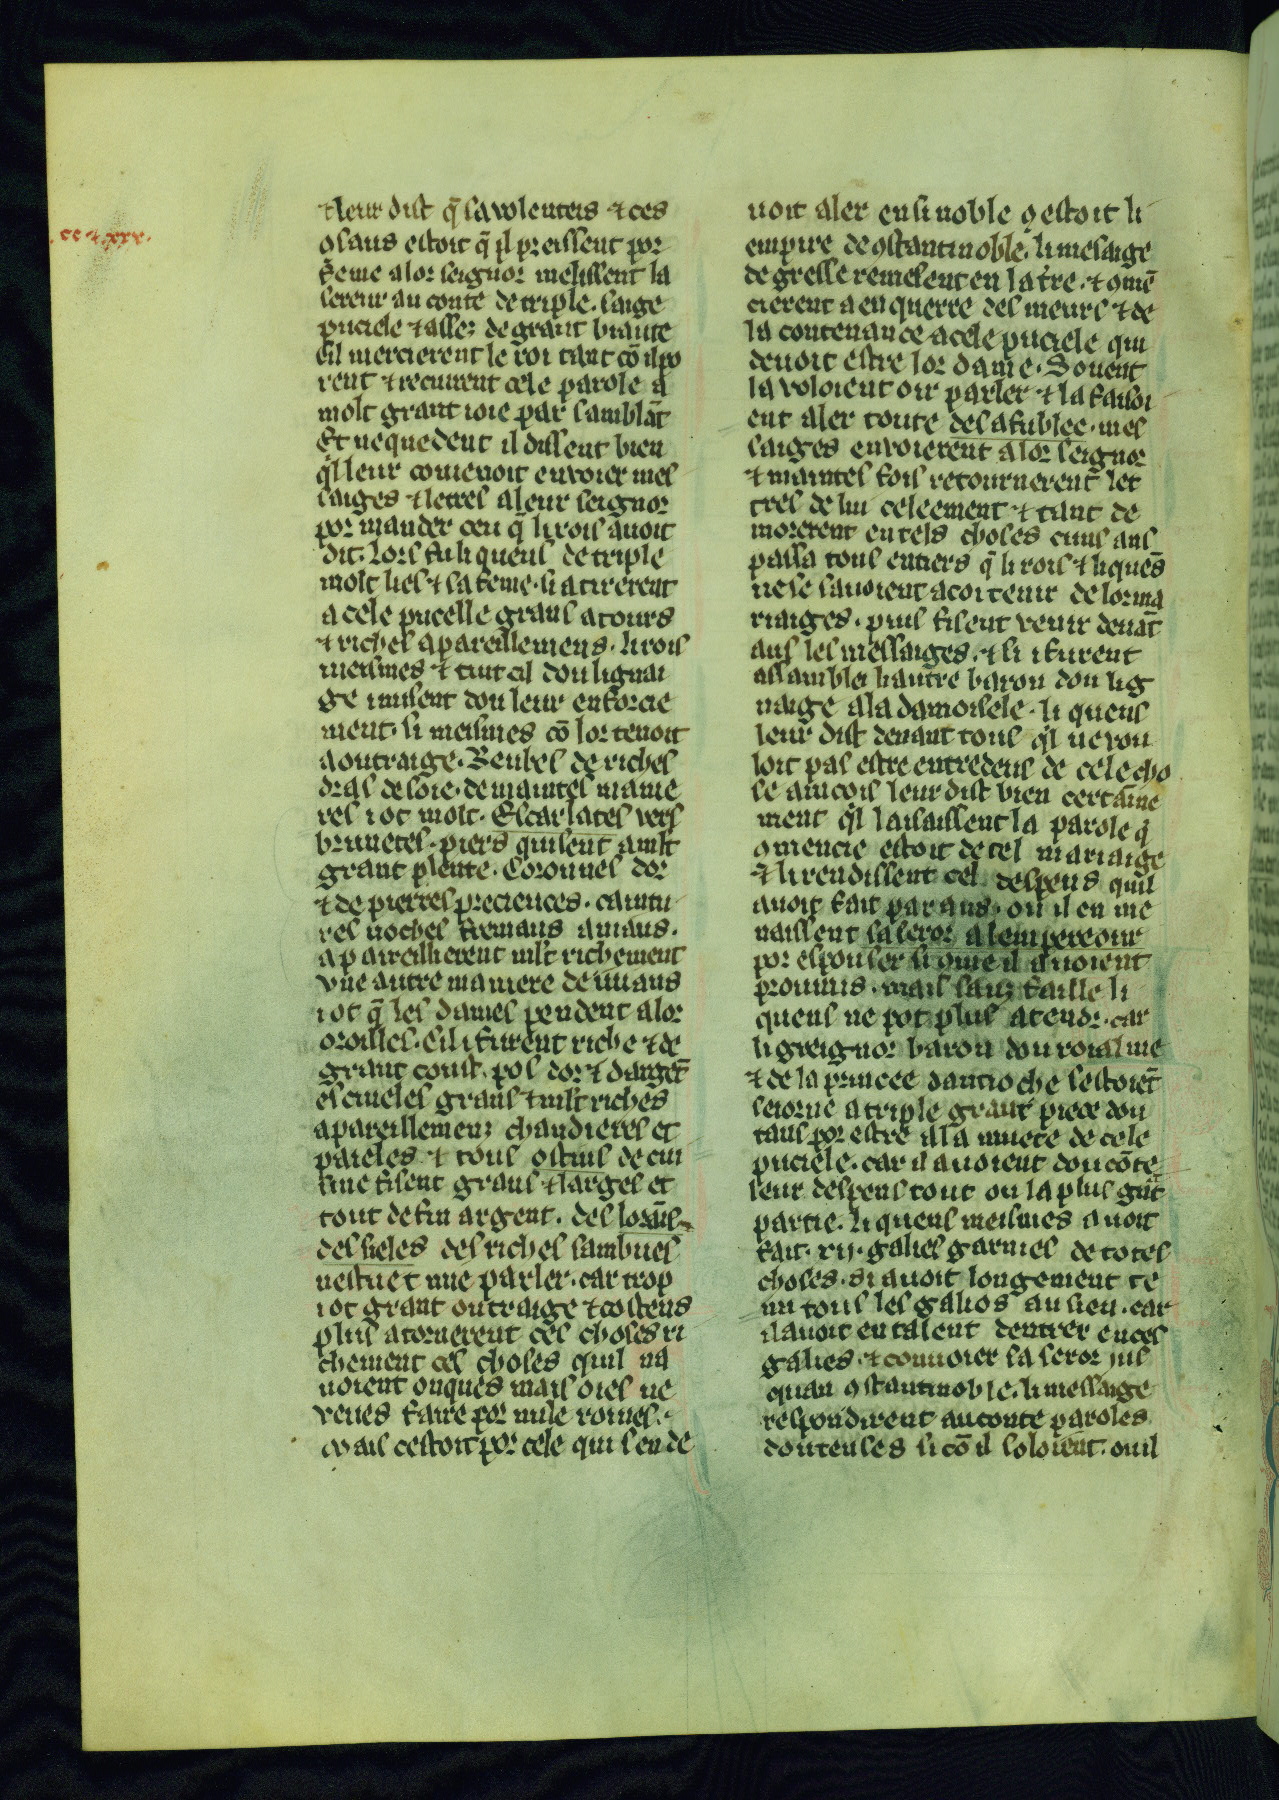 .cc⁊.xxx.
⁊leur dist q̄ sa volenteis ⁊ ces
ꝯsaus estoit q̄ il preissent por
feme a lor seignor melissent la
sereur au conte de triple. saige
puciele ⁊ assez de grant biaute
Cil mercierent le roi tant cō il po
rent ⁊ recurent cele parole a
molt grant ioie par samblāt
Et nequedent il dissent bien
q̄l leur couienoit envoier mes
saiges ⁊ letres a leur seignor
por mander ceu q̄ li rois auoit
dit. Lors fu li queus de triple
molt lies ⁊ sa feme. si atirerent
a cele pucelle grans atours
⁊ riches apareillemens. li rois
meismes ⁊ tuit cil dou lignai
ge imisent dou leur enforcie
ment. si meismes cō lor tenoit
a outraige. Reubes de riches
dras de soie. de maintes manie
res i ot molt. Escarlates vers
brunetes. piers quisent a mlt
grant plente. Coronnes dor
⁊ de pierres preciences. caintu
res noches fremaus aniaus.
apareillierent mlt richement
vne autre maniere de iuiaus
i ot q̄ les dames pendent a lor
oroilles. Cil i furent riche ⁊ de
grant coust. pos dor ⁊ dargēt
escuieles grans ⁊ mlt riches
apareillemenz chaudieres et
paieles ⁊ tous ostius de cui
sine fisent grans ⁊ larges et
tout de fin argent. des lorains
des sieles des richel sambues
nestuet mie parler. car trop
i ot grant outraige ⁊ costeus
plus atornerent ces choses ri
chement ces choses quil na
uoient onques mais oies ne
veues faire por nule roines.
Mais cestoit por cele qui sen de
uoit aler en si noble ꝯ estoit li
empire de ꝯstantinoble. li mesaige
de gresse remesent en la t̄re. ⁊ ꝯmē
cierent a enquerre des meurs ⁊ de
la contenance a cele puciele qui
deuoit estre lor dame. Souent
la voloient oir parler ⁊ la faisoi
ent aler toute desafublee. mes
saiges envoierent a lor seignor
⁊ maintes fois retournerent let
tres de lui celeement ⁊ tant de
morerent en tels choses c'uns ans
passa tous entiers q̄ li rois ⁊ li quēs
ne se sauoient a coi tenir de lor ma
riaiges. puis fisent venir deuāt
aus les messaiges. ⁊ si i furent
assamblei li autre baron dou lig
naige a la damoisele. li queus
leur dist deuant tous q̄l ne vou
loit pas estre entredeus de cele cho
se aincois leur dist bien certaine
ment q̄l laisaissent la parole q̄
ꝯmencie estoit de tel mariaige
⁊ li rendissent cel despens quil
auoit fait par ans. ou il en me
naissent sa seror a lempereour
por espouser si ꝯme il auoient
proumis. mais sanz faille li
queus ne pot plus atendr. car
li greignor baron dou roialme
⁊ de la princee dantioche sestoiēt
seiorne a triple grant piece dou
tans por estre a la muete de cele
puciele. car il auoient dou cōte
leur despens tout ou la plus grāt
partie. li queus meismes auoit
fait. xij. galies garnies de totes
choses. si auoit longement te
nu tous les galios au sien. car
il auoit en talent dentrer en ces
galies. ⁊ conuoier sa seror jus
quan ꝯstantinoble. li messaige
respondirent au conte paroles
douteuses si cō il soloient. ou il